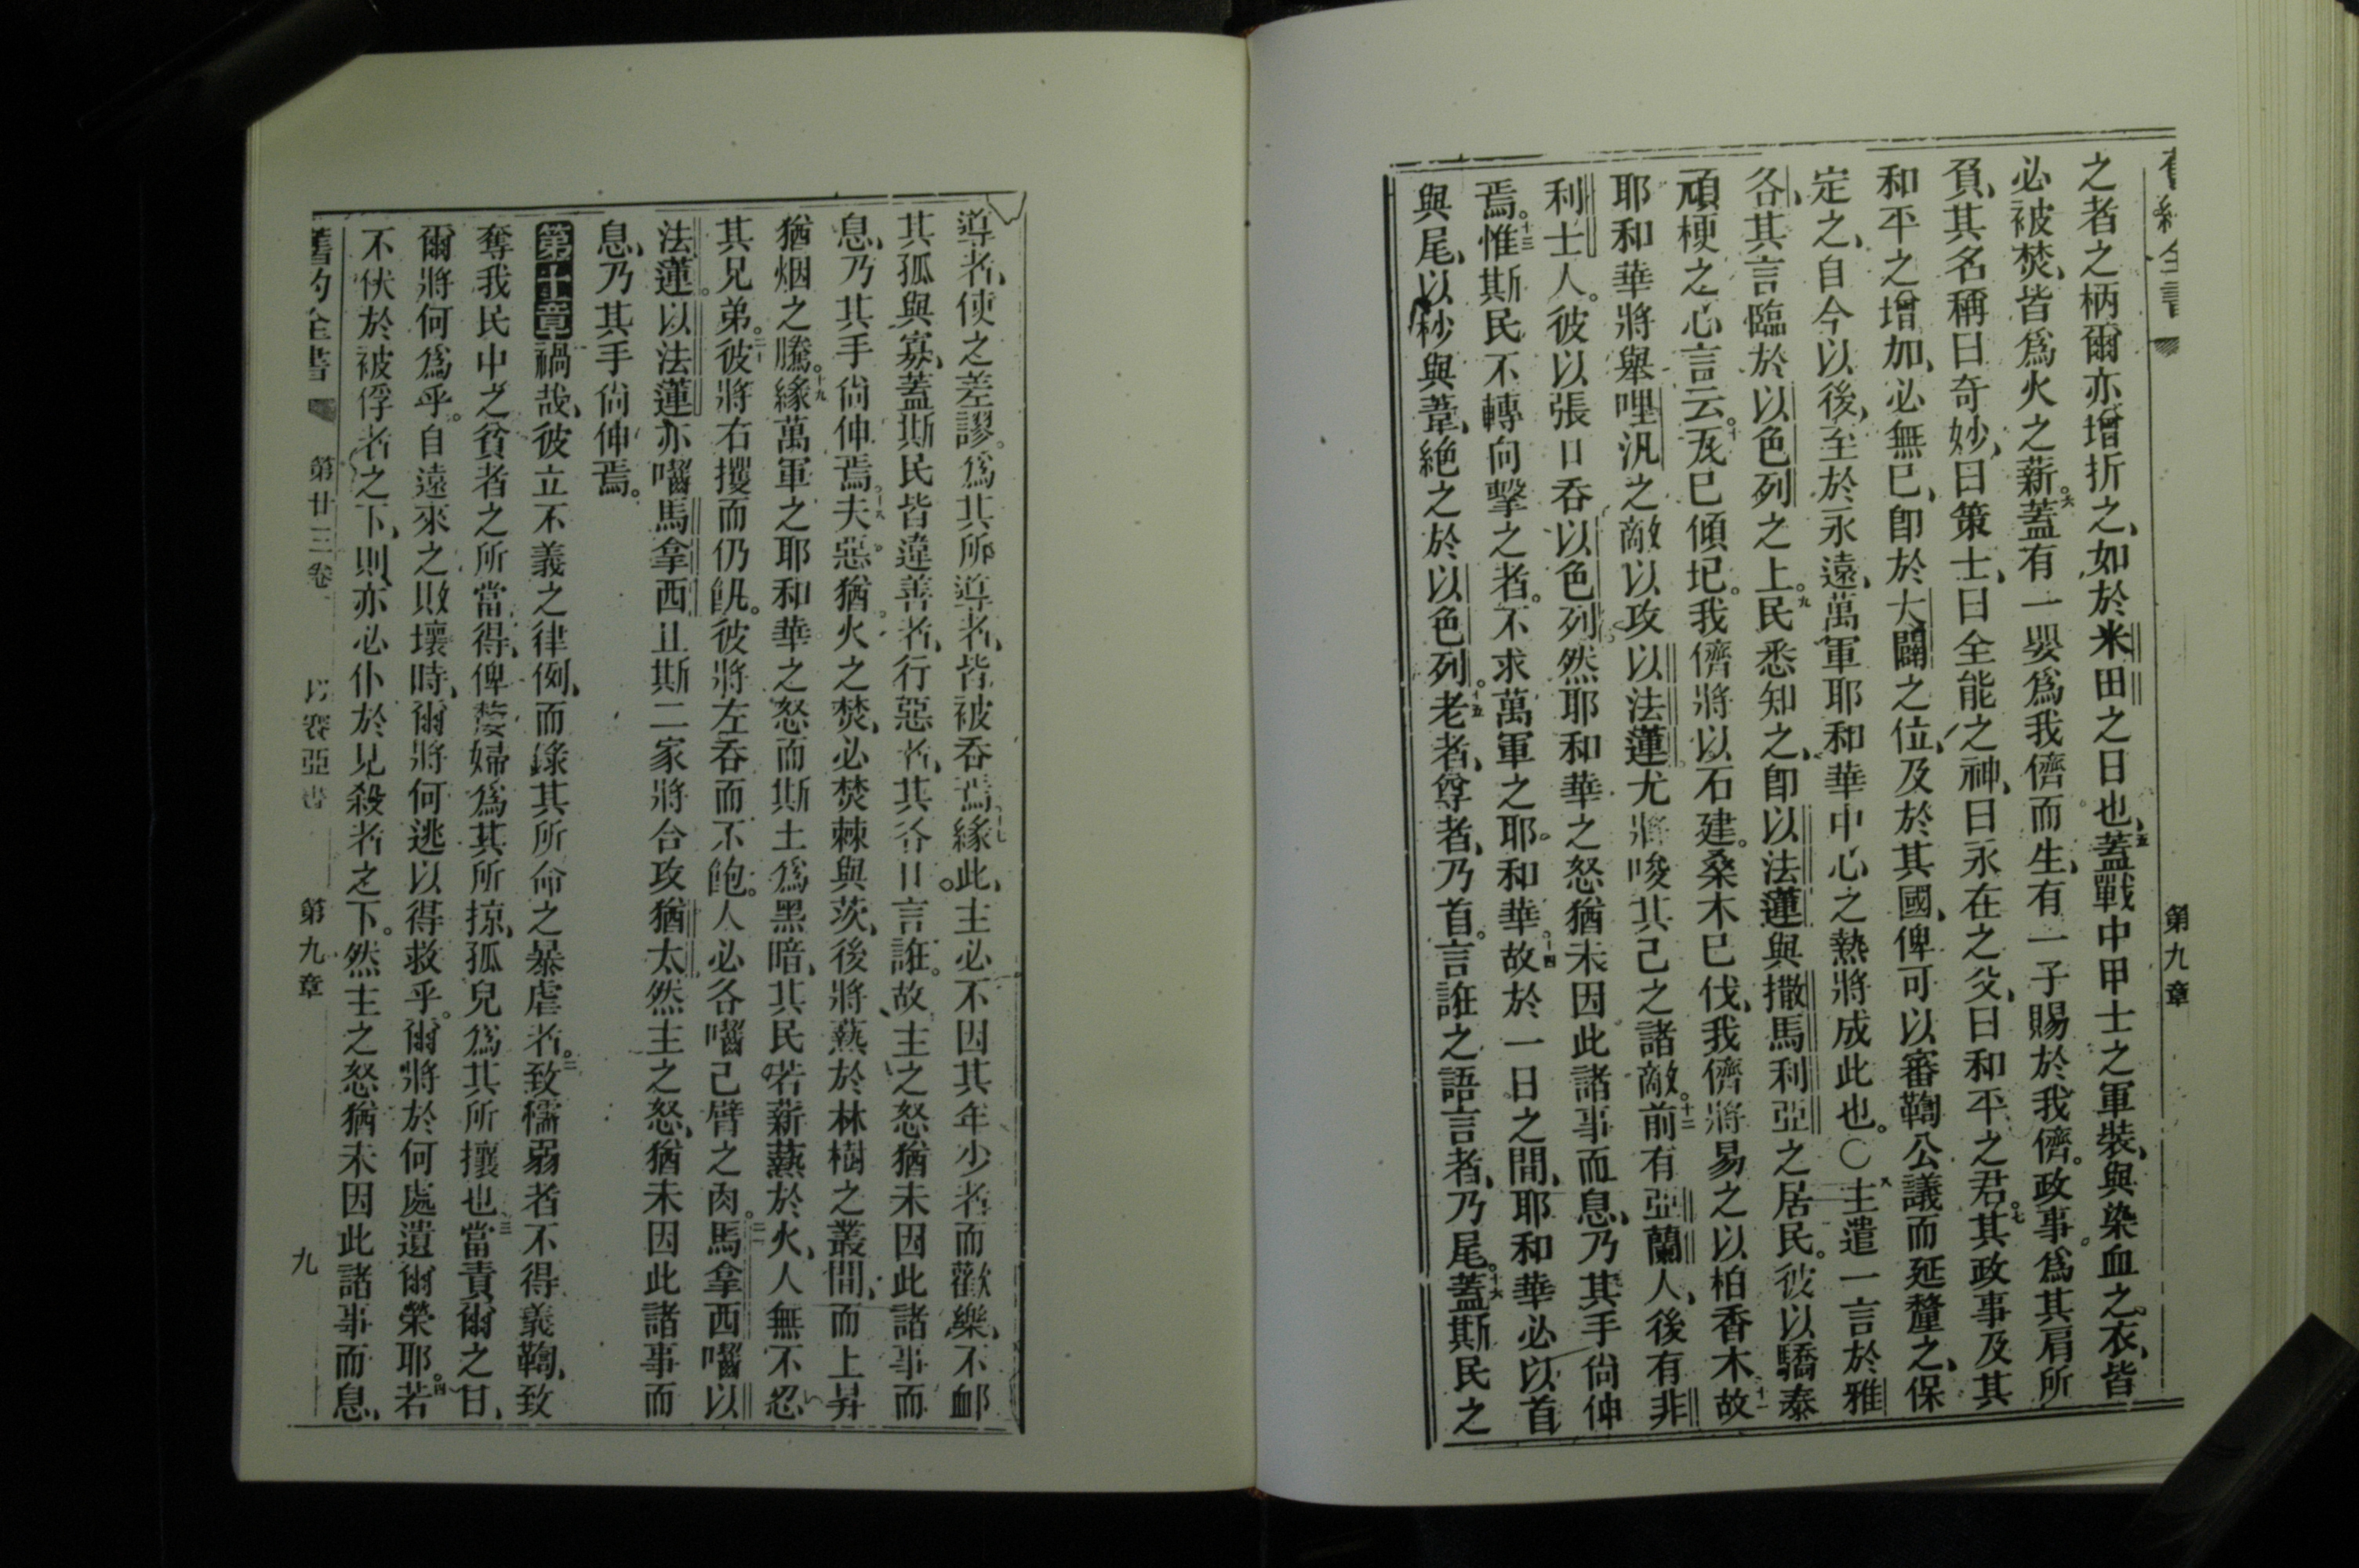 第九章
之者之柄爾亦增折之、如於米田之日也、五蓋戰中甲士之軍裝、與染血之衣、皆
必被焚、皆爲火之薪。六蓋有一嬰爲我儕而生、有一子賜於我儕。政事爲其肩所
負、其名稱曰奇妙、曰策士、曰全能之神、曰永在之父、曰和平之君。七其政事及其
和平之增加、必無已、卽於大闢之位、及於其國、俾可以審鞫公議而延釐之、保
定之、自今以後、至於永遠、萬軍耶和華中心之熱將成此也。〇八主遣一言於雅
各、其言臨於以色列之上。九民悉知之、卽以法蓮與撒馬利亞之居民。彼以驕泰
頑梗之心言云。十瓦已傾圮。我儕將以石建。桑木已伐、我儕將易之以柏香木。十一故
耶和華將舉哩汎之敵以攻以法蓮。尤將唆其己之諸敵。十二前有亞蘭人、後有非
利士人。彼以張口吞以色列然耶和華之怒猶未因此諸事而息、乃其手尙伸
焉。十三惟斯民不轉向擊之者。不求萬軍之耶和華。十四故於一日之間、耶和華必以首
與尾、以杪與葦、絕之於以色列。十五老者、尊者、乃首。言誑之語言者、乃尾。十六蓋斯民之
導者、使之差謬。爲其所導者、皆被吞焉。十七緣此、主必不因其年少者而歡樂、不卹
其孤與寡、蓋斯民皆違善者、行惡者、其各口言誑。故主之怒猶未因此諸事而
息、乃其手尙伸焉。十八夫惡猶火之焚、必焚棘與茨、後將爇於林樹之叢間、而上昇
猶烟之騰。十九緣萬軍之耶和華之怒而斯土爲黑暗、其民若薪爇於火、人無不忍
其兄弟。二十彼將右攫而仍飢。彼將左吞而不飽。人必各嚙己臂之肉。二一馬拿西嚙以
法蓮以法蓮亦嚙馬拿西且斯二家將合攻猶太然主之怒、猶未因此諸事而
息、乃其手尙伸焉。
第十章禍哉、彼立不義之律例、而錄其所命之暴虐者。二致懦弱者不得義鞫、致
奪我民中之貧者之所當得、俾嫠婦爲其所掠、孤兒爲其所攘也、三當責爾之日、
爾將何爲乎。自遠來之敗壞時、爾將何逃以得救乎。爾將於何處遺爾榮耶。四若
不伏於被俘者之下、則亦必仆於見殺者之下。然主之怒猶未因此諸事而息、
舊約全書 第廿三卷 以賽亞書 第九章 九